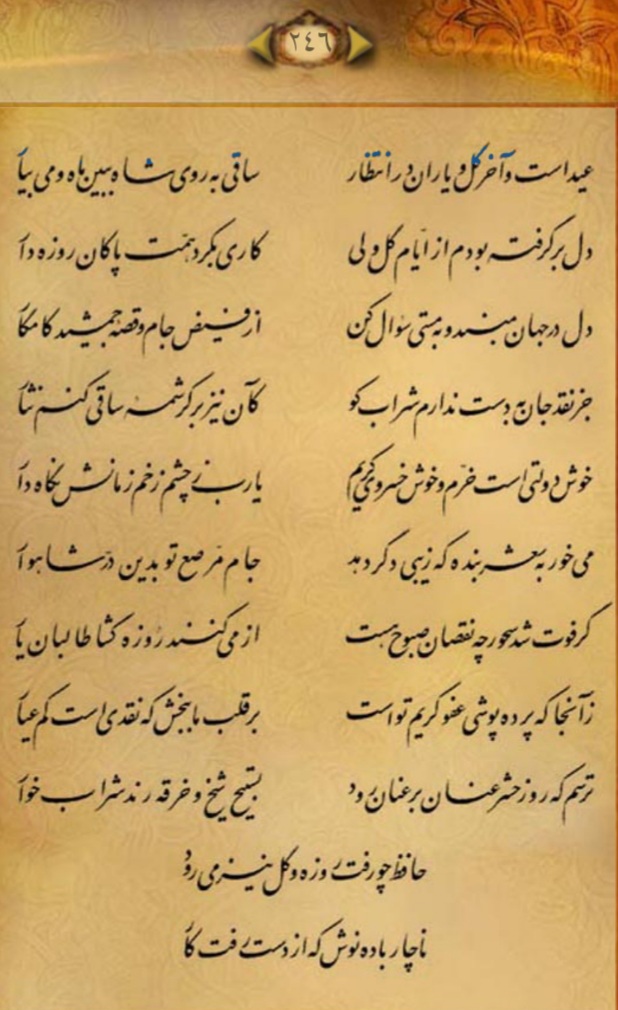 ٢٤٦
عید است و آخر گل و یاران در انتظار
ساقی به روی شاه ببین ماه و می بیار
دل برگرفته بودم از ایام گل ولی
کاری بکرد همت پاکان روزه دار
دل در جهان مبند و به مستی سؤال کن
از فیض جام و قصه جمشید کامگار
جز نقد جان به دست ندارم شراب کو
کان نیز بر کرشمه ساقی کنم نثار
خوش دولتی است خرم و خوش خسروی کریم
یا رب ز چشم زخم زمانش نگاه دار
می خور به شعر بنده که زیبی دگر دهد
جام مرصع تو بدین در شاهوار
گر فوت شد سحور چه نقصان صبوح هست
از می کنند روزه گشا طالبان یار
زآنجا که پرده پوشی عفو کریم تو است
بر قلب ما ببخش که نقدی است کم عیار
ترسم که روز حشر عنان بر عنان رود
تسبیح شیخ و خرقه رند شراب خوار
حافظ چو رفت روزه و گل نیز می رود
ناچار باده نوش که از دست رفت کار